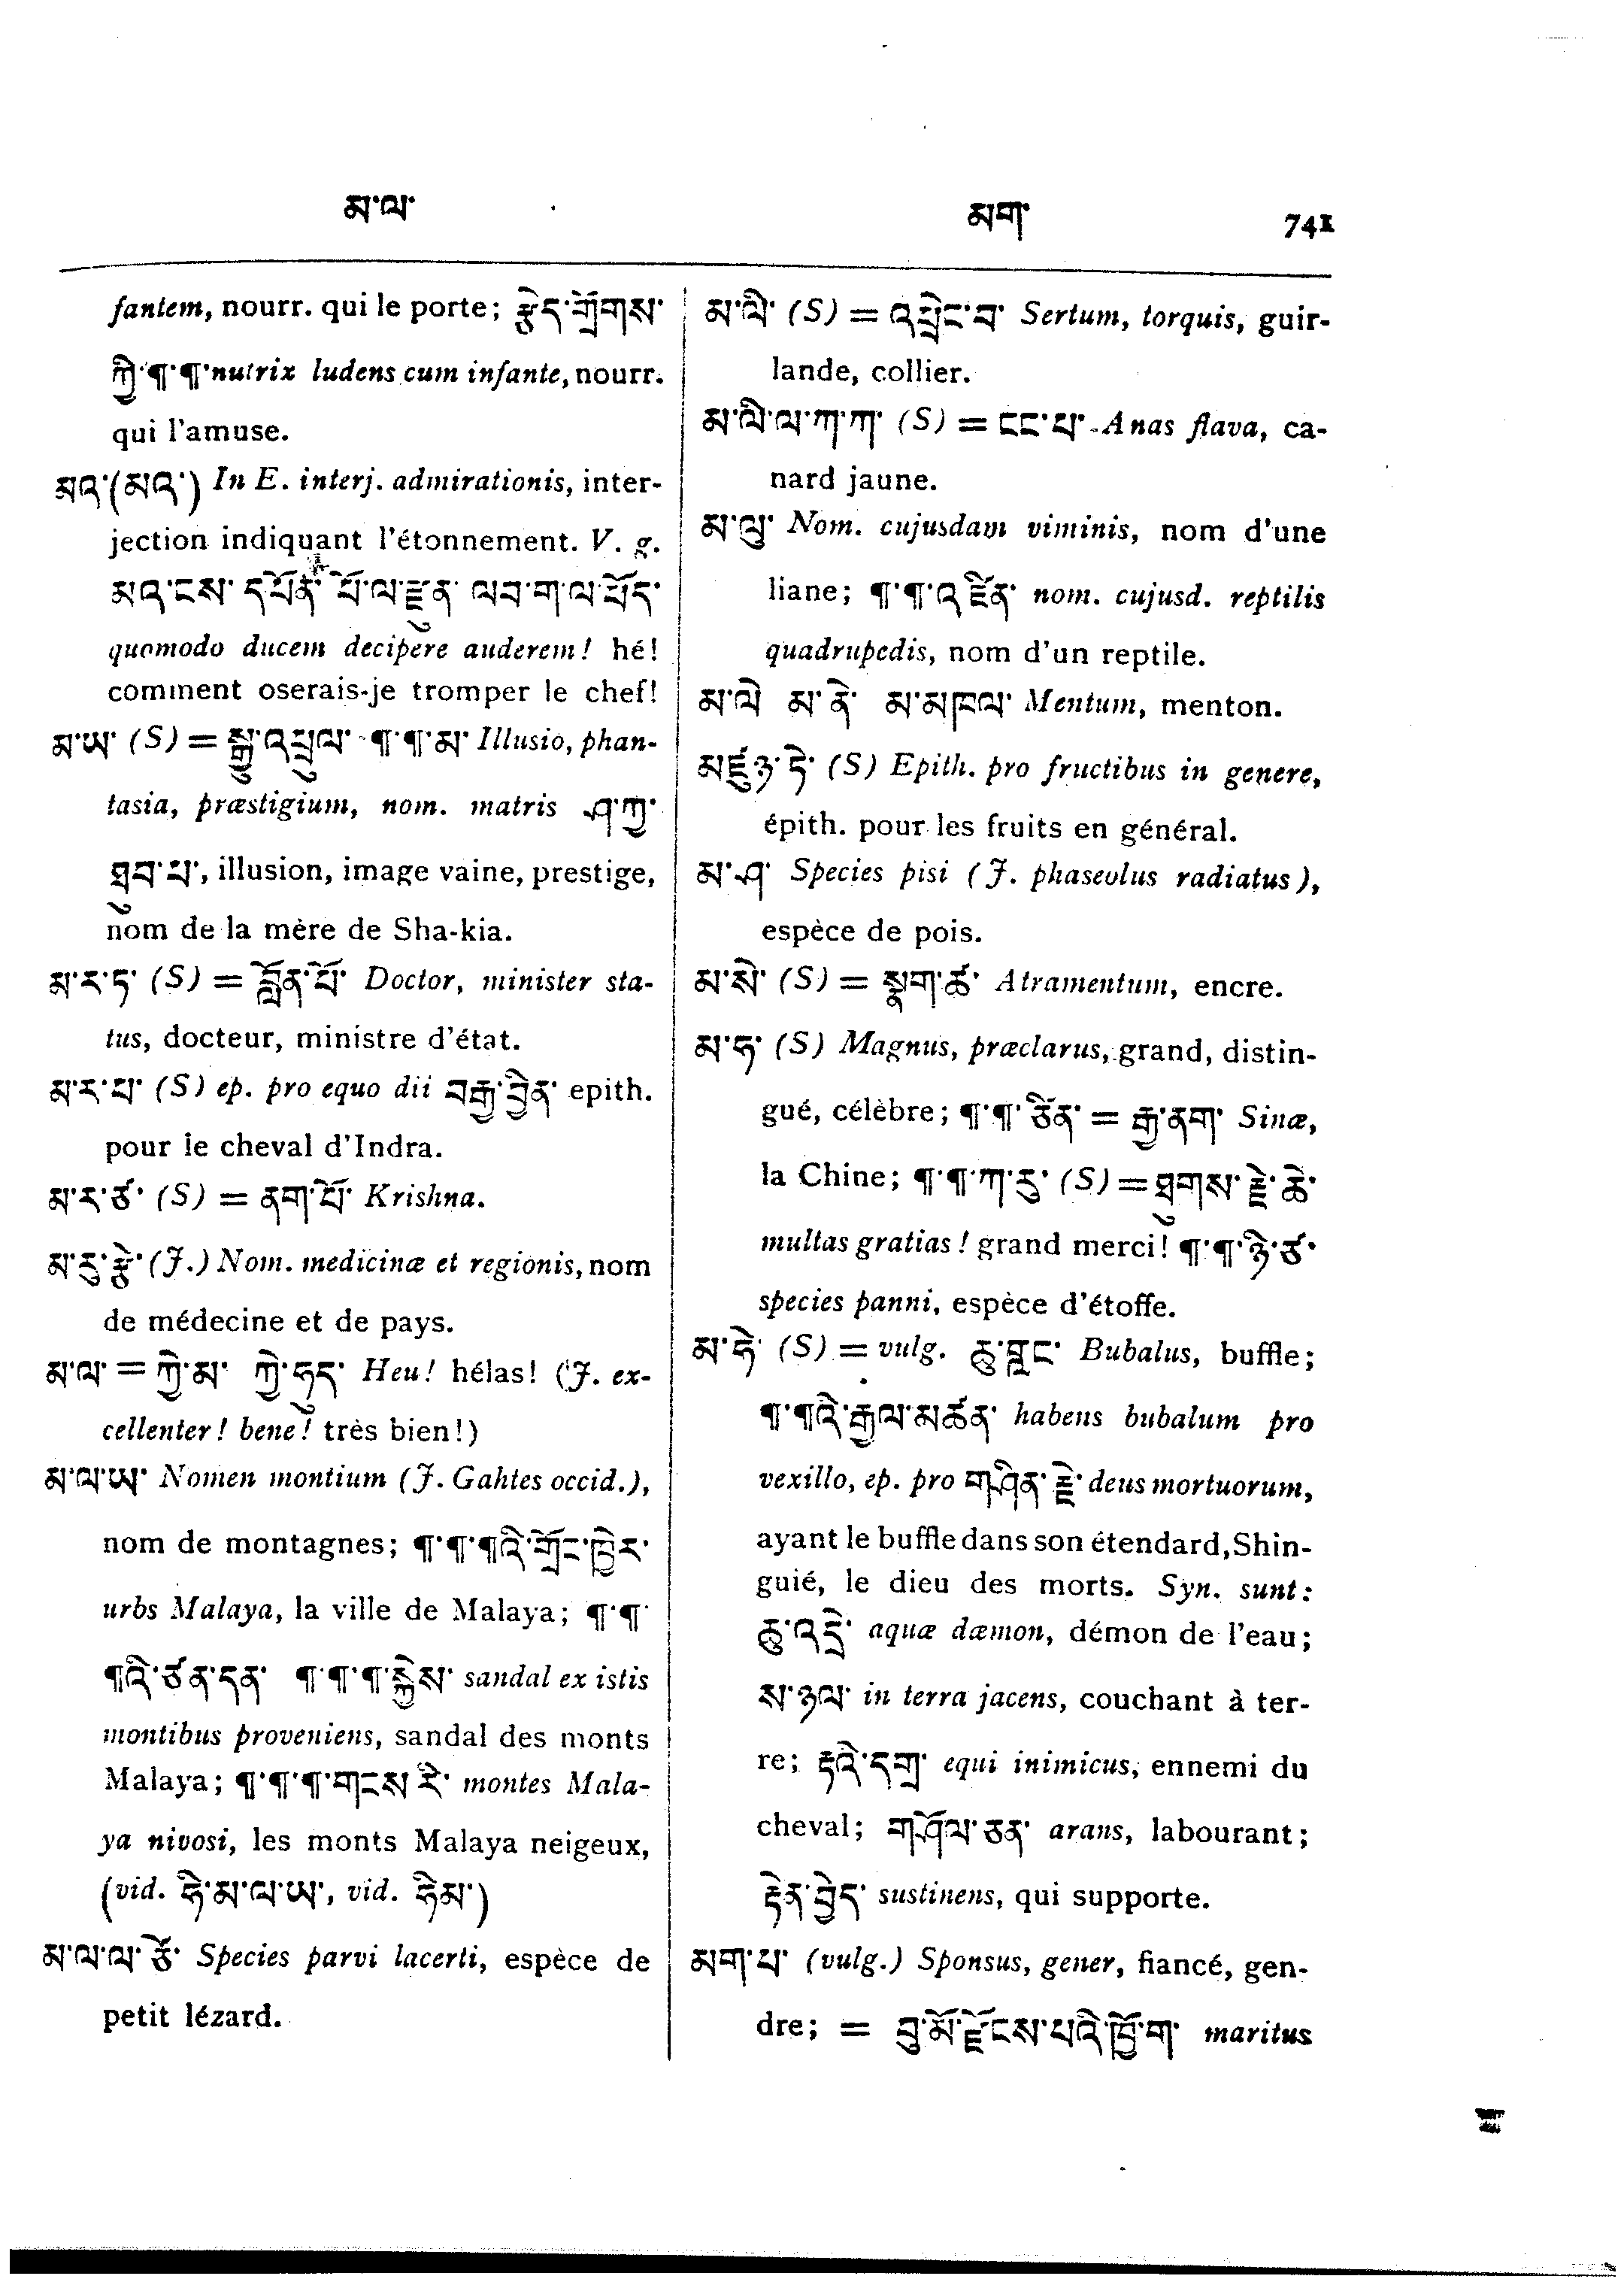 མ་ལ་ མག་ 741
fantem, nourr. qui le porte; རྩེད་གྲོགས་
ཀྱི་¶་¶་nutrix ludens cum infante, nourr.
qui l'amuse.
མའ་(མཨའ་) In E. interj. admirationis, inter-
jection indiquant l'étonnement. V. g.
མའ་ངས་ དཔོན་ པོ་ལ་རྫུན་ ལབ་ག་ལ་ཕོད་
quomodo ducem decipere auderem! hé!
comment oserais-je tromper le chef!
མ་ཡ་ (S) = སྒྱུ་འཕྲུལ་ ¶་¶་མ་ Illusio, phan-
tasia, præstigium, nom. matris ཤ་ཀྱ་
ཐུབ་པ་, illusion, image vaine, prestige,
nom de la mère de Sha-kia.
མ་ར་ཏ་ (S) = བློན་པོ་ Doctor, minister sta-
tus, docteur, ministre d'état.
མ་ར་པ་ (S) ep. pro equo dii བརྒྱ་བྱིན་ epith.
pour le cheval d'Indra.
མ་ར་ཙ་ (S) = ནག་པོ་ Krishna.
མ་རུ་རྩེ་ (J.) Nom. medicinæ et regionis, nom
de médecine et de pays.
མ་ལ་ = ཀྱེ་མ་ ཀྱེ་ཧུད་ Heu! hélas! (J. ex-
cellenter! bene! très bien!)
མ་ལ་ཡ་ Nomen montium (J. Gahtes occid.),
nom de montagnes; ¶་¶་¶འི་གྲོང་ཁྱེར་
urbs Malaya, la ville de Malaya; ¶་¶་
¶འི་ཙན་དན་ ¶་¶་¶་སྐྱེས་ sandal ex istis
montibus proveniens, sandal des monts
Malaya; ¶་¶་¶་གངས་རི་ montes Mala-
ya nivosi, les monts Malaya neigeux,
(vid. ཧི་མ་ལ་ཡ་, vid. ཧིམ་)
མ་ལ་ལ་ཙོ་ Species parvi lacerti, espèce de
petit lézard.
མ་ལི་ (S) = འཕྲེང་བ་ Sertum, torquis, guir-
lande, collier.
མ་ལི་ལ་ཀ་ཀ་ (S) = ངང་པ་ Anas flava, ca-
nard jaune.
མ་ལུ་ Nom. cujusdam viminis, nom d'une
liane; ¶་¶་འཛིན་ nom. cujusd. reptilis
quadrupedis, nom d'un reptile.
མ་ལེ མ་ནེ་ མ་མཁལ་ Mentum, menton.
མཛུཉ་ཏེ་ (S) Epith. pro fructibus in genere,
épith. pour les fruits en général.
མ་ཤ་ Species pisi (J. phaseolus radiatus),
espèce de pois.
མ་སེ་ (S) = སྣག་ཚ་ Atramentum, encre.
མ་ཧ་ (S) Magnus, præclarus, grand, distin-
gué, célèbre; ¶་¶་ཙིན་ = རྒྱ་ནག་ Sinæ,
la Chine; ¶་¶་ཀ་རུ་ (S) = ཐུགས་རྗེ་ཆེ་
multas gratias! grand merci! ¶་¶་ཉེ་ཙ་
species panni, espèce d'étoffe.
མ་ཧེ་ (S) = vulg. ཆུ་གླང་ Bubalus, buffle;
¶་¶འི་རྒྱལ་མཚན་ habens bubalum pro
vexillo, ep. pro གཤིན་རྗེ་ deus mortuorum,
ayant le buffle dans son étendard, Shin-
guié, le dieu des morts. Syn. sunt:
ཆུ་འདྲེ་ aquæ dæmon, démon de l'eau;
ས་ཉལ་ in terra jacens, couchant à ter-
re; རྟའི་དགྲ་ equi inimicus, ennemi du
cheval; གཤོལ་ཅན་ arans, labourant;
རྟེན་བྱེད་ sustinens, qui supporte.
མག་པ་ (vulg.) Sponsus, gener, fiancé, gen-
dre; = བུ་མོ་རྫོངས་པའི་ཁྱོ་ག་ maritus